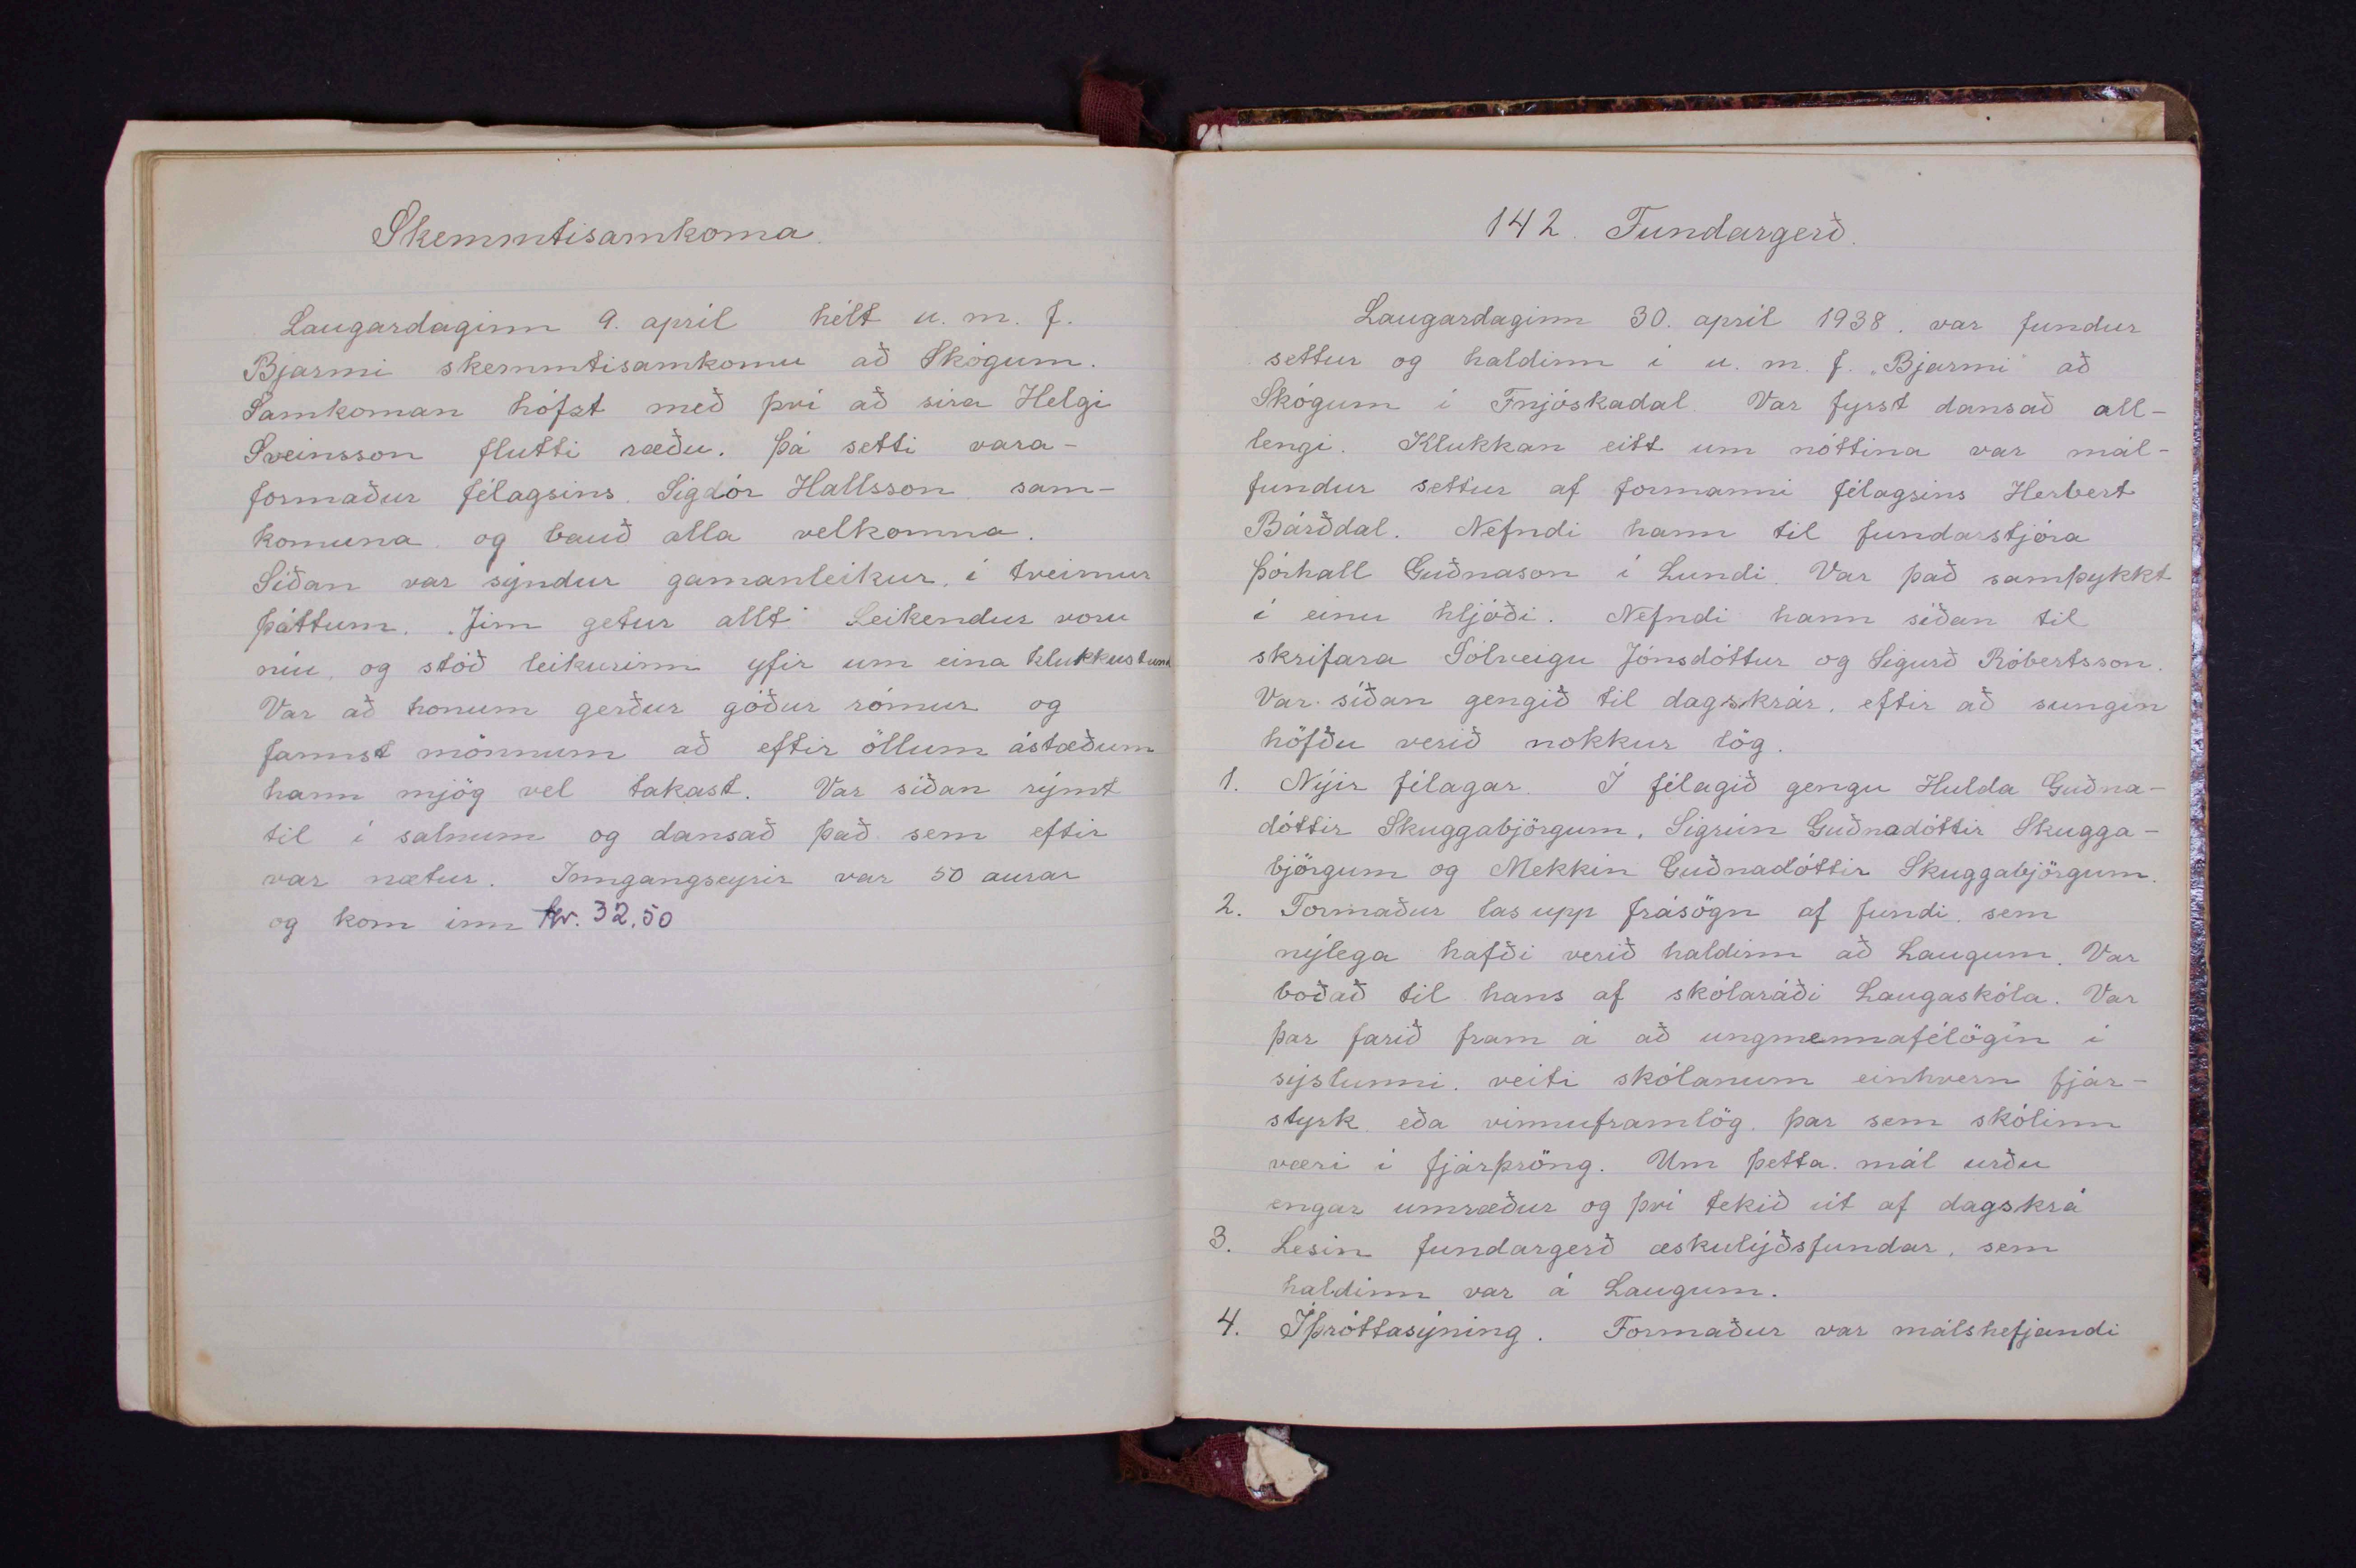 Skemmtisamkoma.
Laugardaginn 9. apríl hélt u. m. f.
Bjarmi skemmtisamkomu að Skógum.
Samkoman hófst með því að síra Helgi
Sveinsson flutti ræðu. Þá setti vara-
formaður félagsins. Sigdór Hallsson sam-
komuna og bauð alla velkomna.
Síðan var sýndur gamanleikur, í tveimur
þáttum. „Jim getur allt“ Leikendur voru
níu, og stóð leikurinn yfir um eina klukkustund
Var að honum gerður góður rómur og
fannst mönnum að eftir öllum ástæðum
hann mjög vel takast. Var síðan rýmt
til í salnum og dansað það sem eftir
var nætur. Inngangseyrir var 50 aurar
og kom inn kr. 32,50
142. Fundargerð.
Laugardaginn 30. apríl 1938. var fundur
settur og haldinn í u. m. f. „Bjarmi“ að
Skógum í Fnjóskadal. Var fyrst dansað all-
lengi. Klukkan eitt um nóttina var mál-
fundur settur af formanni félagsins Herbert
Bárðdal. Nefndi hann til fundarstjóra
Þórhall Guðnason í Lundi. Var það samþykkt
í einu hljóði. Nefndi hann síðan til
skrifara Sólveigu Jónsdóttur og Sigurð Róbertsson.
Var síðan gengið til dagskrár, eftir að sungin
höfðu verið nokkur lög.
1. Nýir félagar. Í félagið gengu Hulda Guðna-
dóttir Skuggabjörgum, Sigrún Guðnadóttir Skugga-
björgum og Mekkin Guðnadóttir Skuggabjörgum.
2. Formaður las upp frásögn af fundi, sem
nýlega hafði verið haldinn að Laugum. Var
boðað til hans af skólaráði Laugaskóla. Var
þar farið fram á að ungmennafélögin í
sýslunni, veiti skólanum einhvern fjár-
styrk eða vinnuframlög, þar sem skólinn
væri í fjárþröng. Um þetta mál urðu
engar umræður og því tekið út af dagskrá
3. Lesin fundargerð æskulýðsfundar, sem
haldinn var á Laugum.
4. Íþróttasýning. Formaður var málshefjandi